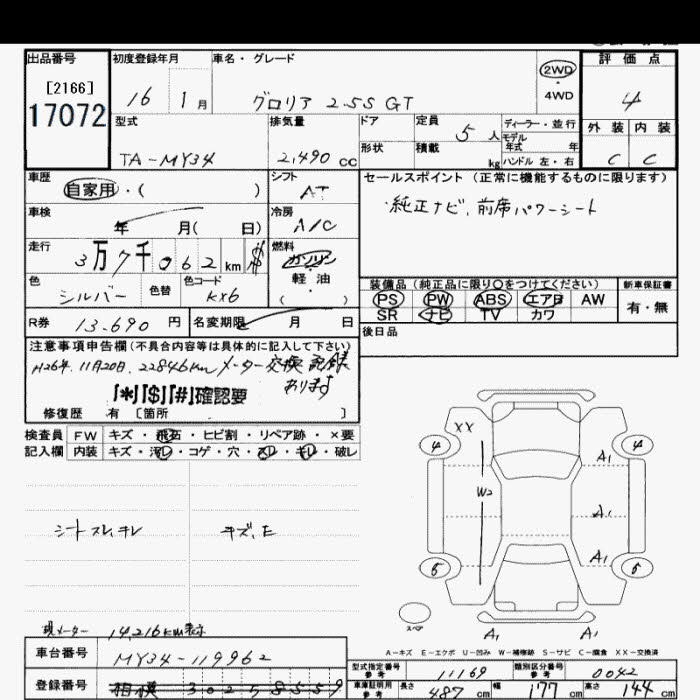 出品番号 初度登録年月 車名・グレード 2WD ・ 4WD 評価点
[2166]
17072
16 1月 グロリア 2.5S GT 4
型式 排気量 ドア 定員 5人 ディーラー・並行 外装 内装
形状 積載 kg モデル年式 年
TA-MY34 2,490 cc ハンドル 左・右 C C
車歴 シフト セールスポイント (正常に機能するものに限ります)
自家用・( ) AT
純正ナビ、前席パワーシート
車検 冷房
年 月( 日) A/C
走行 3万7千062km $ 燃料
ガソリン・軽油
( )
色 色替 色コード 装備品 (純正品に限り○をつけてください) 新車保証書
シルバー KX6 PS PW ABS エアB AW 有・無
SR ナビ TV カワ
R券 13,690 円 名変期限 月 日
後日品
注意事項申告欄(不具合内容等は具体的に記入して下さい)
H26年.11月20日.22846km メーター交換記録
あります
「*」「$」「#」確認要
修復歴 有 〔箇所 〕
検査員記入欄 FW キズ・飛石・ヒビ割・リペア跡・×要
内装 キズ・汚レ・コゲ・穴・スレ・キレ・破レ
XX 4 4
A1
W2
A1
A1
5 5
シートスレ,キレ キズ,E
スペア
現メーター 14,216km表示
A1 A1
A-キズ E-エクボ U-凹み W-補修跡 S-サビ C-腐食 XX-交換済
車台番号 MY34-119962
型式指定番号 参考 11169 類別区分番号 参考 0042
登録番号 相模 302 5 8559
車庫証明用 参考 長さ 487 cm 幅 177 cm 高さ 144 cm